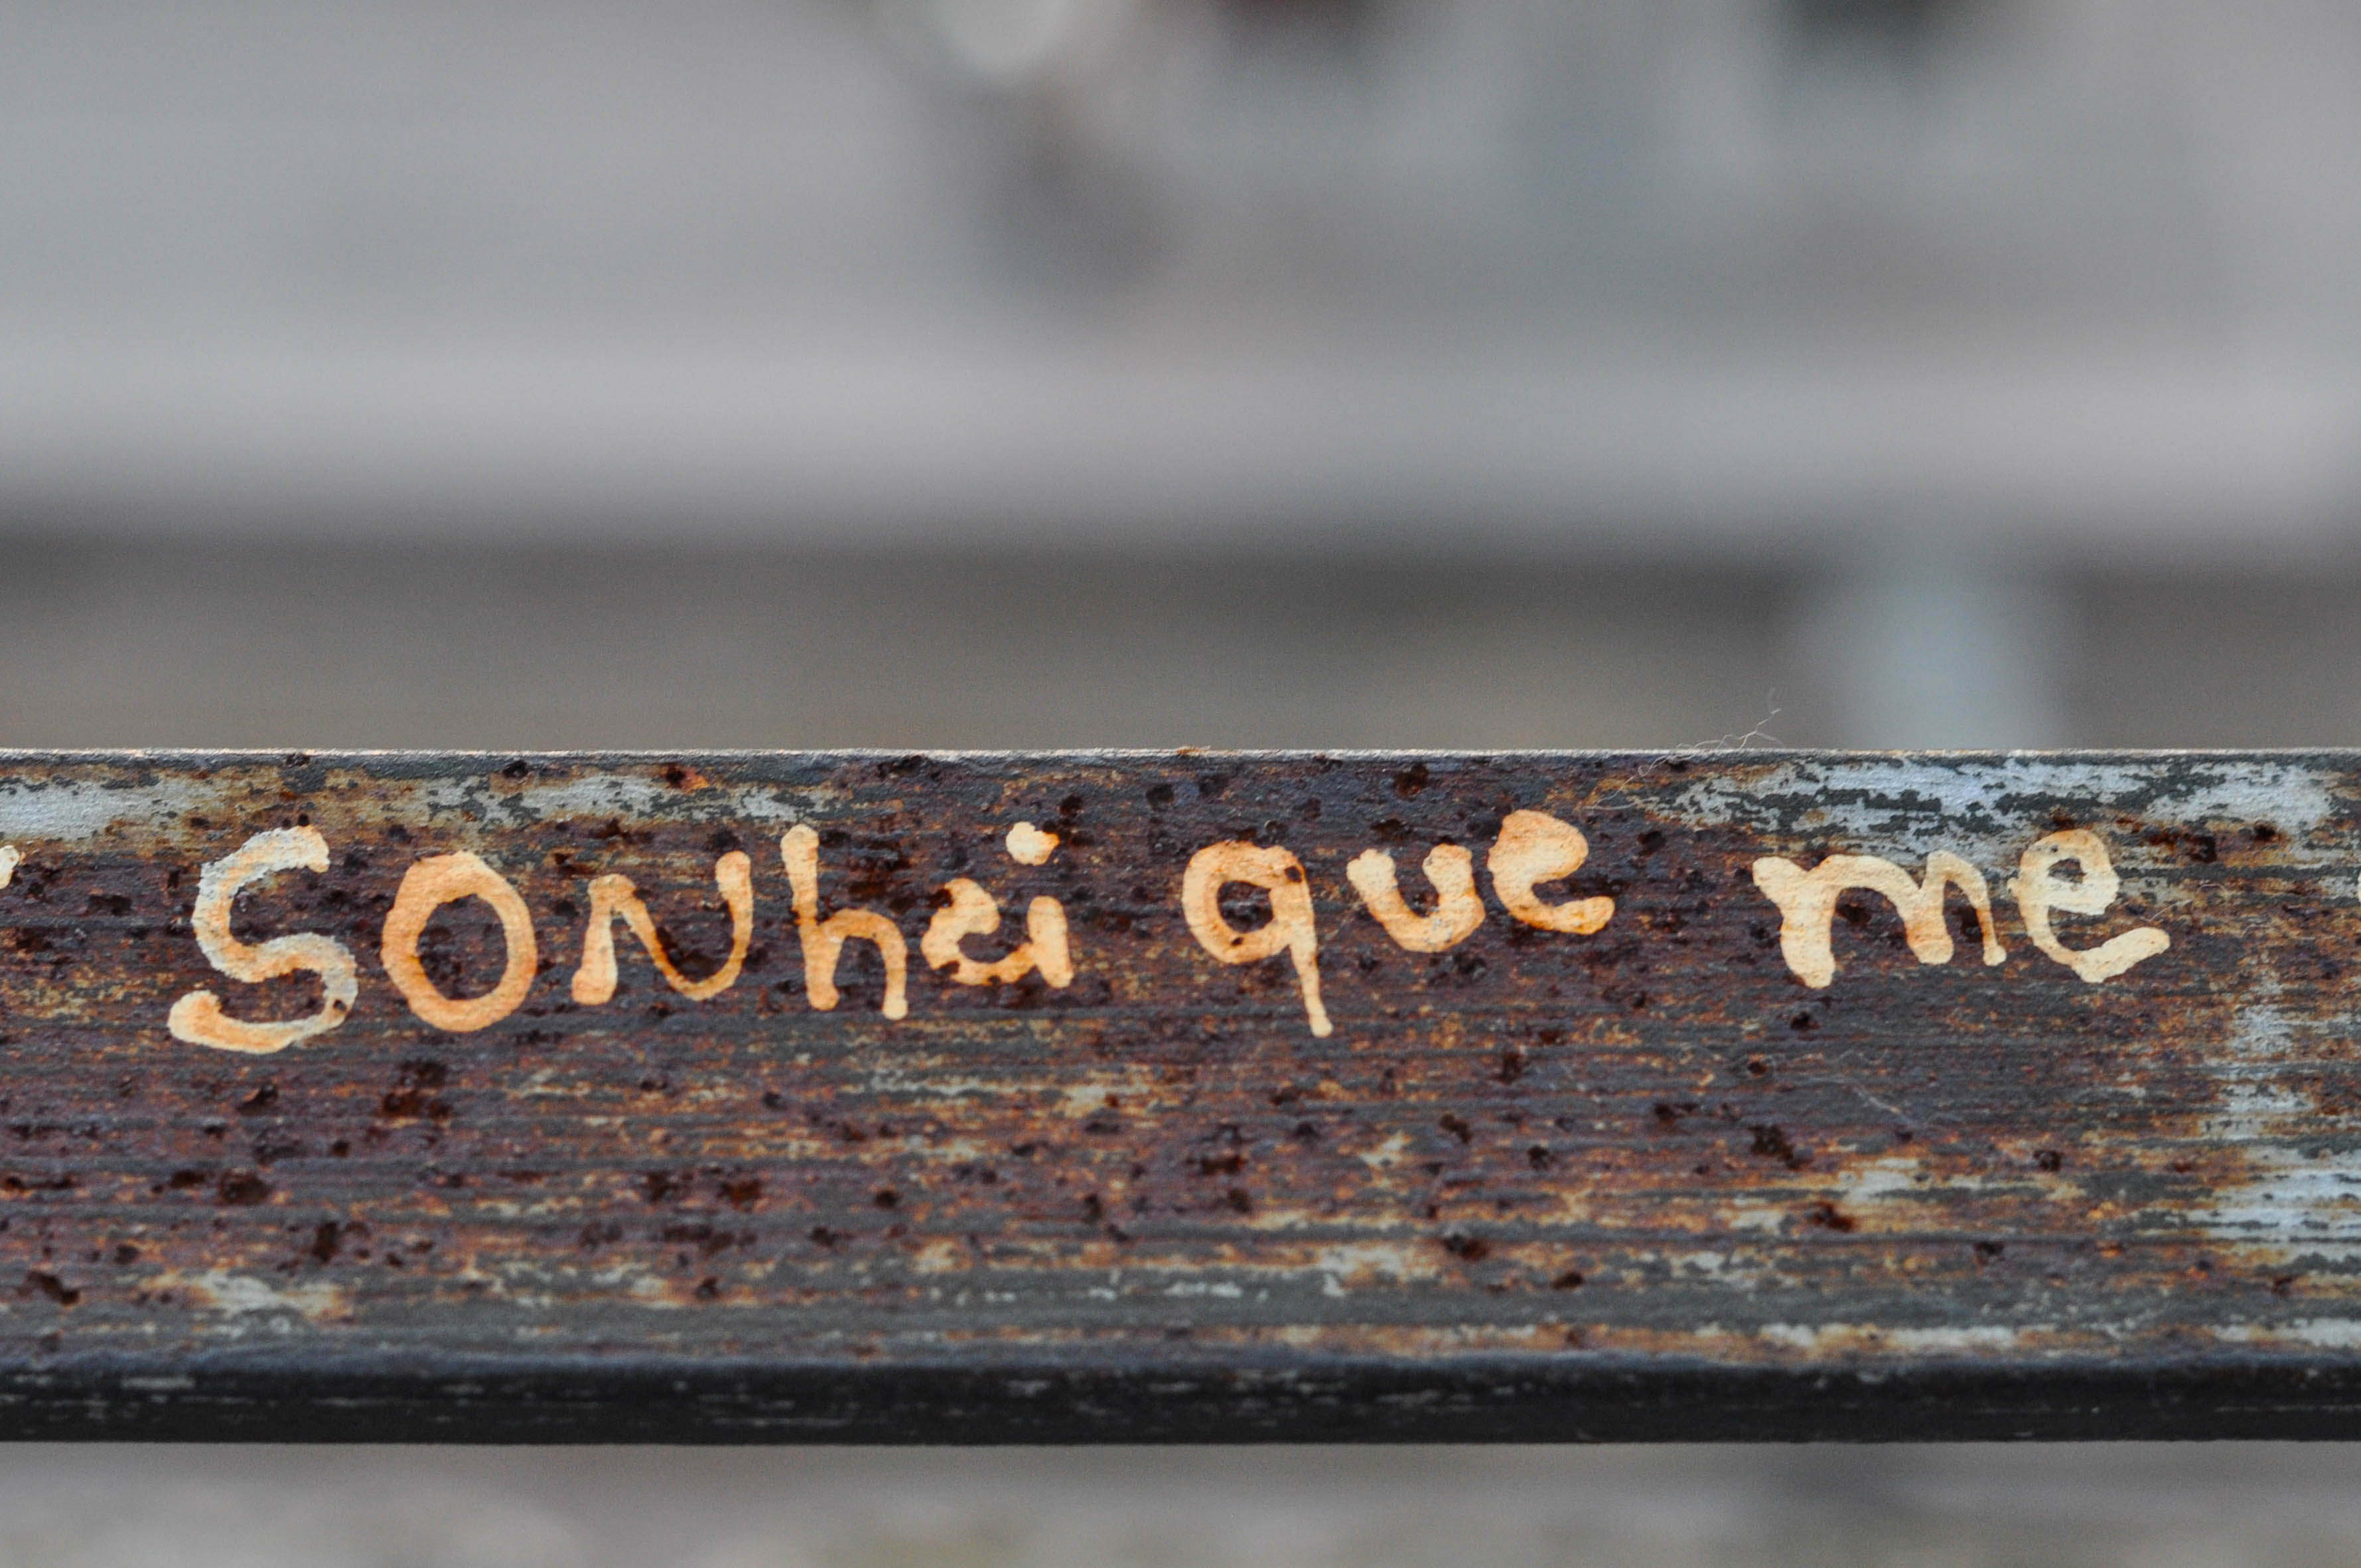 SONhei que me